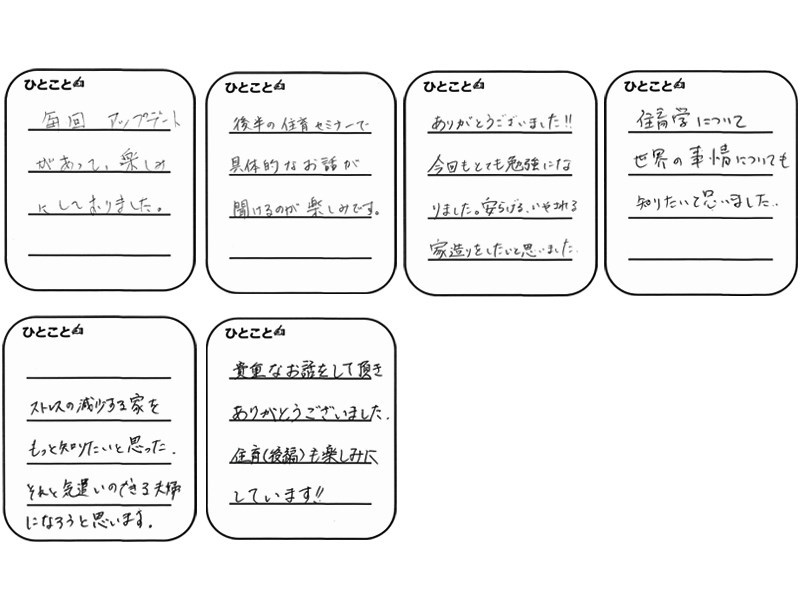 ひとこと
毎回 アップデート
があって、楽しみ
にしておりました。
ひとこと
後半の住育セミナーで
具体的なお話が
聞けるのが楽しみです。
ひとこと
ありがとうございました!!
今回もとても勉強にな
りました。安らげる、いやされる
家造りをしたいと思いました.
ひとこと
住育学について
世界の事情についても
知りたいて思いました..
ひとこと
ストレスの減少する家を
もっと知りたいと思った.
それと気遣いのできる夫婦
になろうと思います。
ひとこと
貴重なお話をして頂き
ありがとうございました.
住育(後編)も楽しみに
しています!!